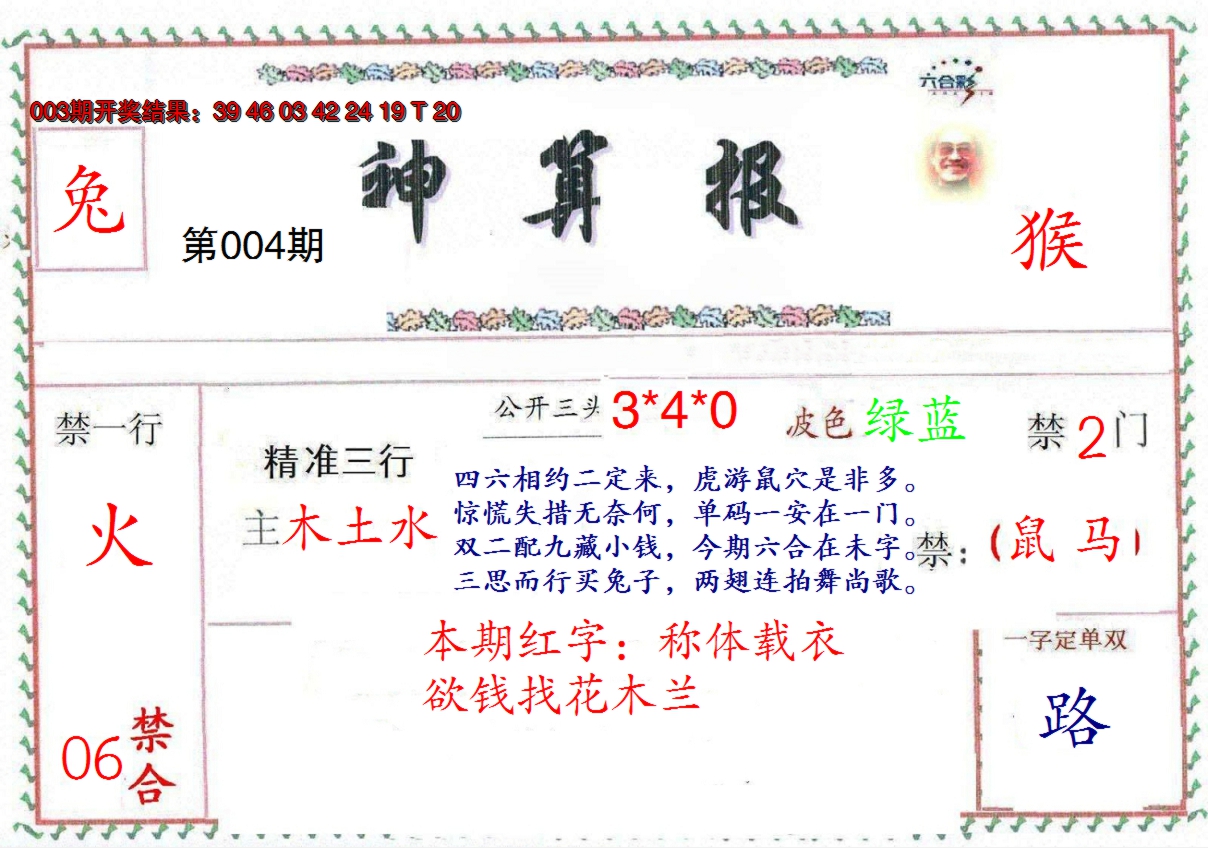 六合彩
003期开奖结果：39 46 03 42 24 19 T 20
神算报
兔
第004期
猴
禁一行
火
06禁合
精准三行
主木土水
公开三头 3*4*0
波色 绿蓝
禁2门
禁：（鼠 马）
四六相约二定来，虎游鼠穴是非多。
惊慌失措无奈何，单码一安在一门。
双二配九藏小钱，今期六合在未字。
三思而行买兔子，两翅连拍舞尚歌。
本期红字：称体载衣
欲钱找花木兰
一字定单双
路